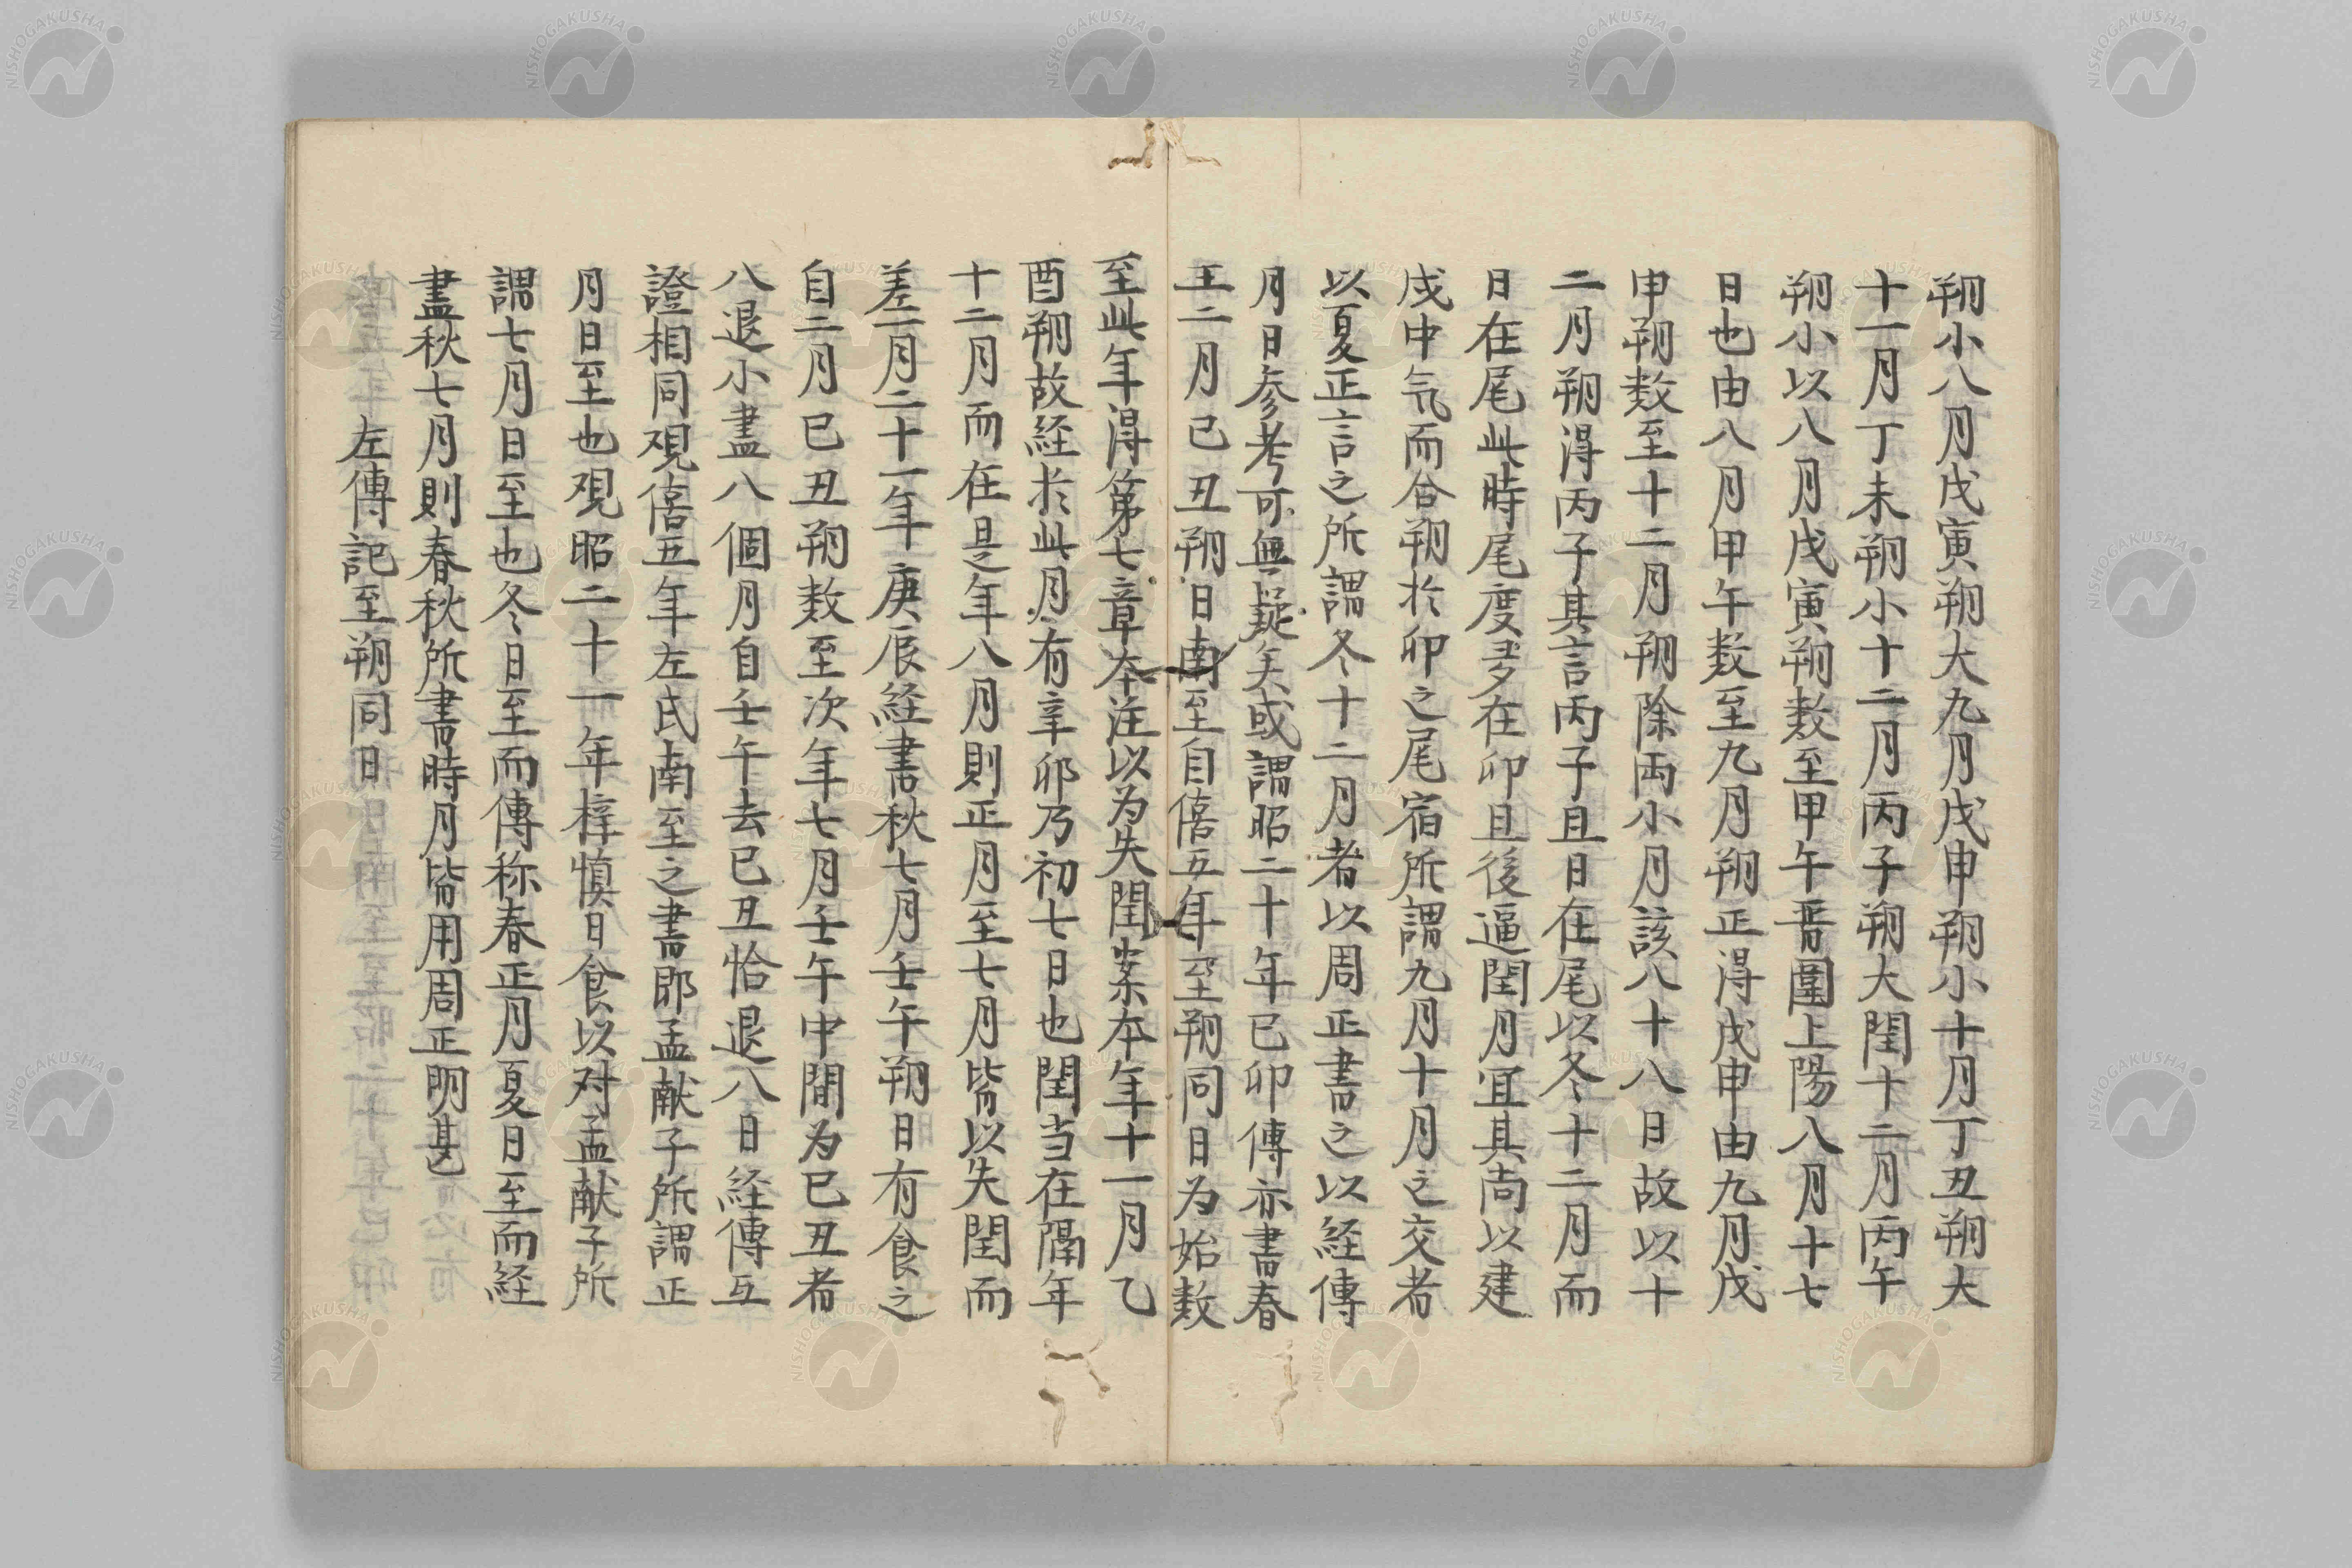 朔小八月戊寅朔大九月戊申朔小十月丁丑朔大
十一月丁未朔小十二月丙子朔大閏十二月丙午
朔小以八月戊寅朔数至甲午晋圍上陽八月十七
日也由八月甲午数至九月朔正得戊申由九月戊
申朔数至十二月朔除両小月該八十八日故以十
二月朔得丙子其言丙子且日在尾以冬十二月而
日在尾此時尾度多在卯且後逼閏月宜其尚以建
戌中気而合朔於卯之尾宿所謂九月十月之交者
以夏正言之所謂冬十二月者以周正書之以経傳
月日参考可無疑矣或謂昭二十年己卯傳亦書春
王二月己丑朔日南至自僖五年至朔同日为始数
至此年得第七章本注以为失閏案本年十一月乙
酉朔故経於此月有辛卯乃初七日也閏当在隔年
十二月而在是年八月則正月至七月皆以失閏而
差一月二十一年庚辰経書秋七月壬午朔日有食之
自二月己丑朔数至次年七月壬午中間为己丑者
八退小盡八個月自壬午去己丑恰退八日経傳互
證相同观僖五年左氏南至之書即孟献子所謂正
月日至也观昭二十一年梓慎日食以对孟献子所
謂七月日至也冬日至而傳称春正月夏日至而経
書秋七月則春秋所書時月皆用周正明甚
左傳記至朔同日
NISHOGAKUSHA